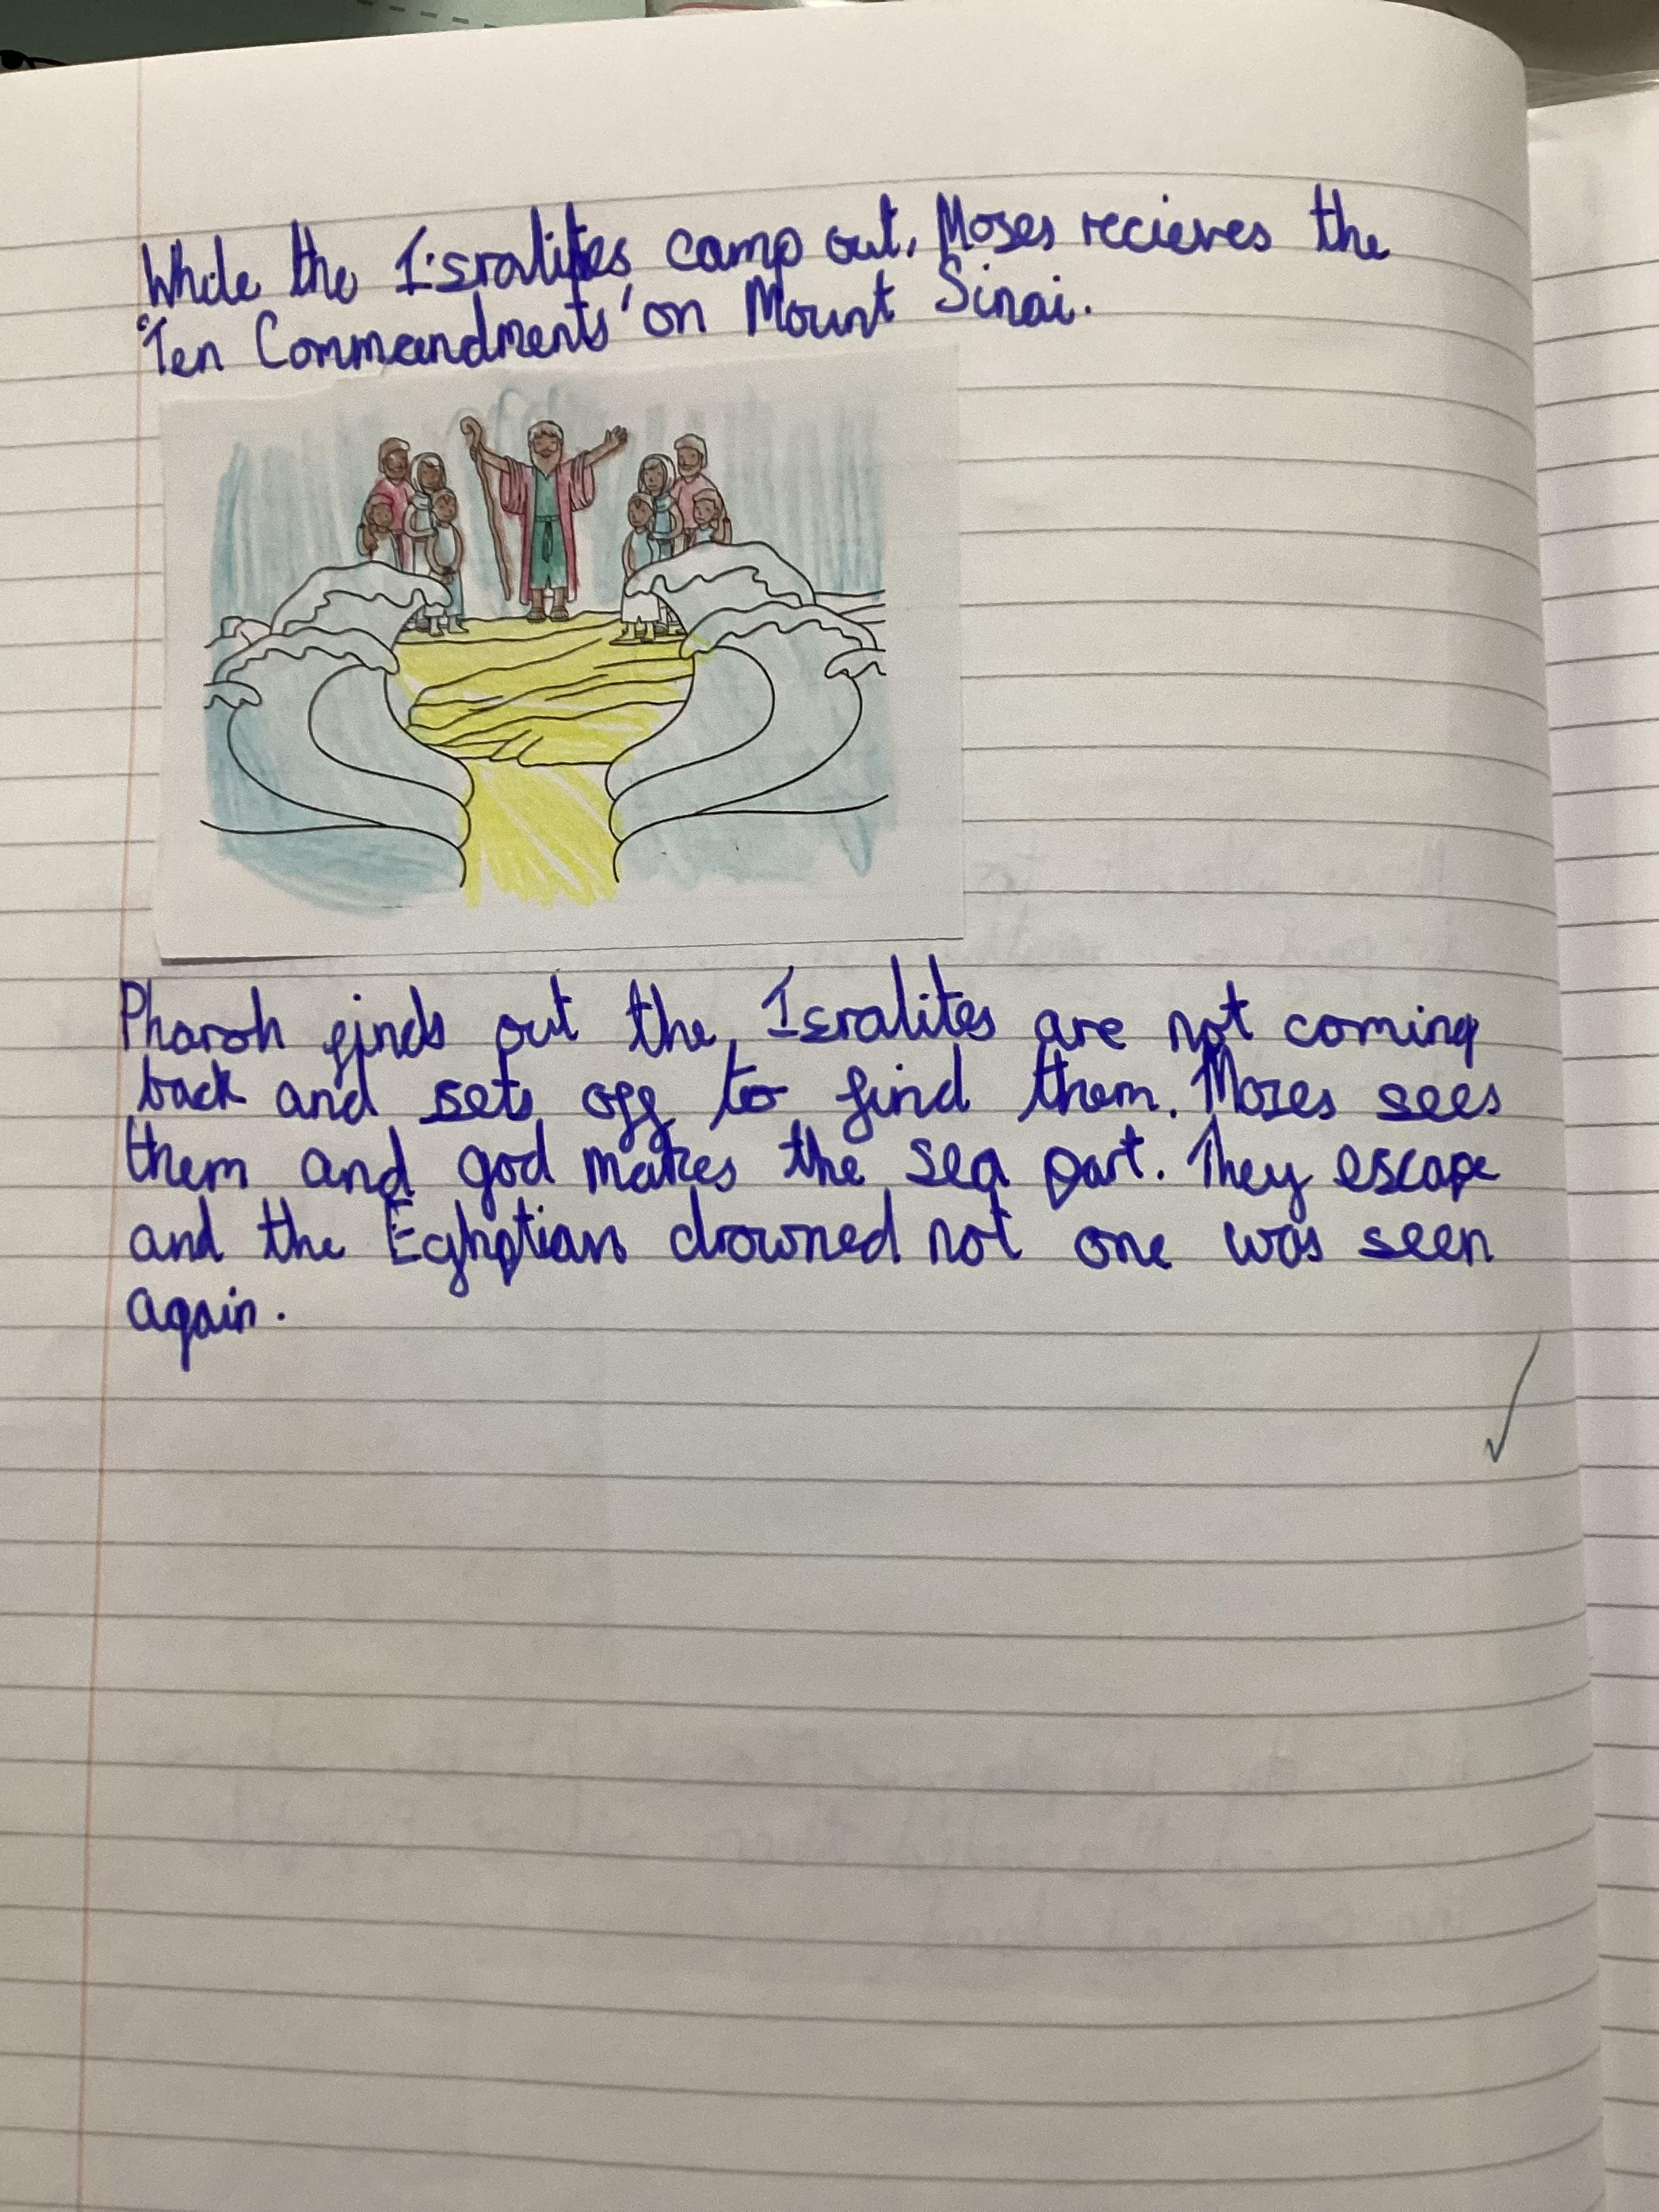 While the Isralites camp out, Moses recieves the
'Ten Commandments' on Mount Sinai.
Pharoh finds out the Isralites are not coming
back and sets off to find them. Moses sees
them and god makes the sea part. They escape
and the Eghptians drowned not one was seen
again.